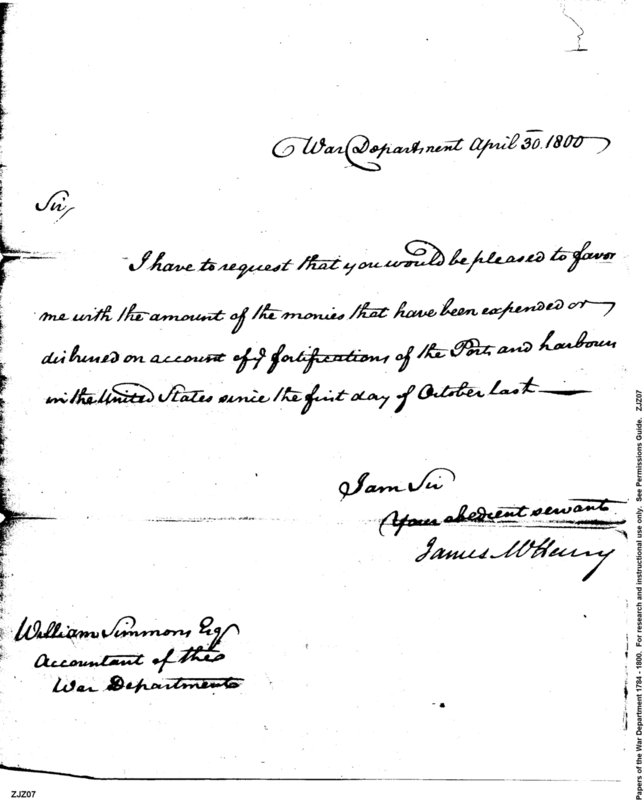 War Department April 30. 1800
Sir,
I have to request that you would be pleased to favor
me with the amount of the monies that have been expended or
disbursed on account of ye fortifications of the Ports and harbours
in the United States since the first day of October last
I am Sir
Your obedient servant
James McHenry
William Simmons Esqr
Accountant of the
War Department
ZJZ07
Papers of the War Department 1784 - 1800. For research and instructional use only. See Permissions Guide. ZJZ07